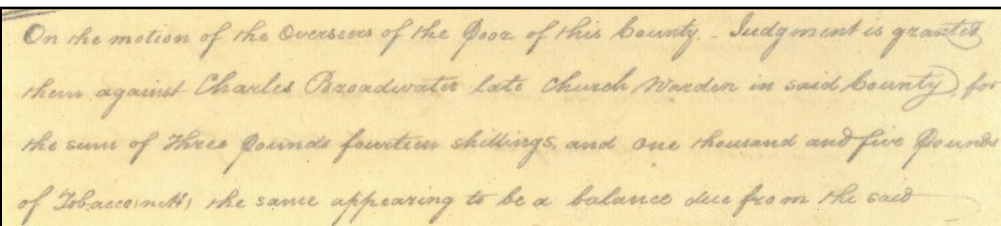 On the motion of the Overseers of the Poor of this County - Judgment is granted
them against Charles Broadwater late Church Warden in said County, for
the sum of Three Pounds fourteen shillings, and one thousand and five Pounds
of Tobacco, nett, the same appearing to be a balance due from the said